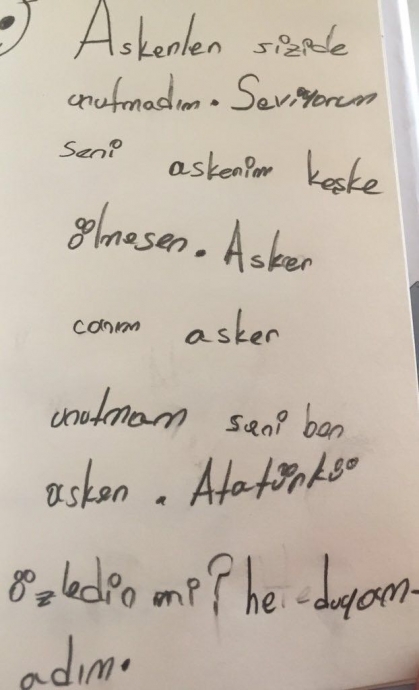 Askerler sizide
unutmadım. Seviyorum
seni askerim keşke
ölmesen. Asker
canım asker
unutmam seni ben
asker. Atatürkü
özledin mi? he duyam-
adım.